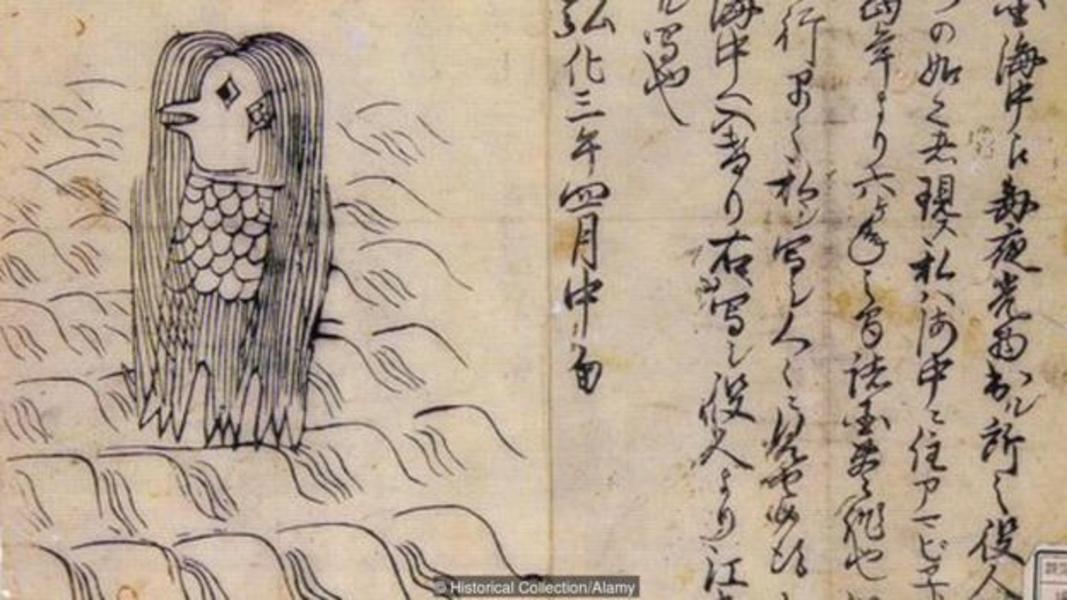 国海中え毎夜光物出ル所之役人
づの如之者現ス私ハ海中ニ住アマビヱ
當年より六ヶ年之間諸国豊作也
行早々私写シ人々ニ見せ候得
海中へ入けり右写シ役人より江
ル写也
弘化三年四月中旬
© Historical Collection/Alamy